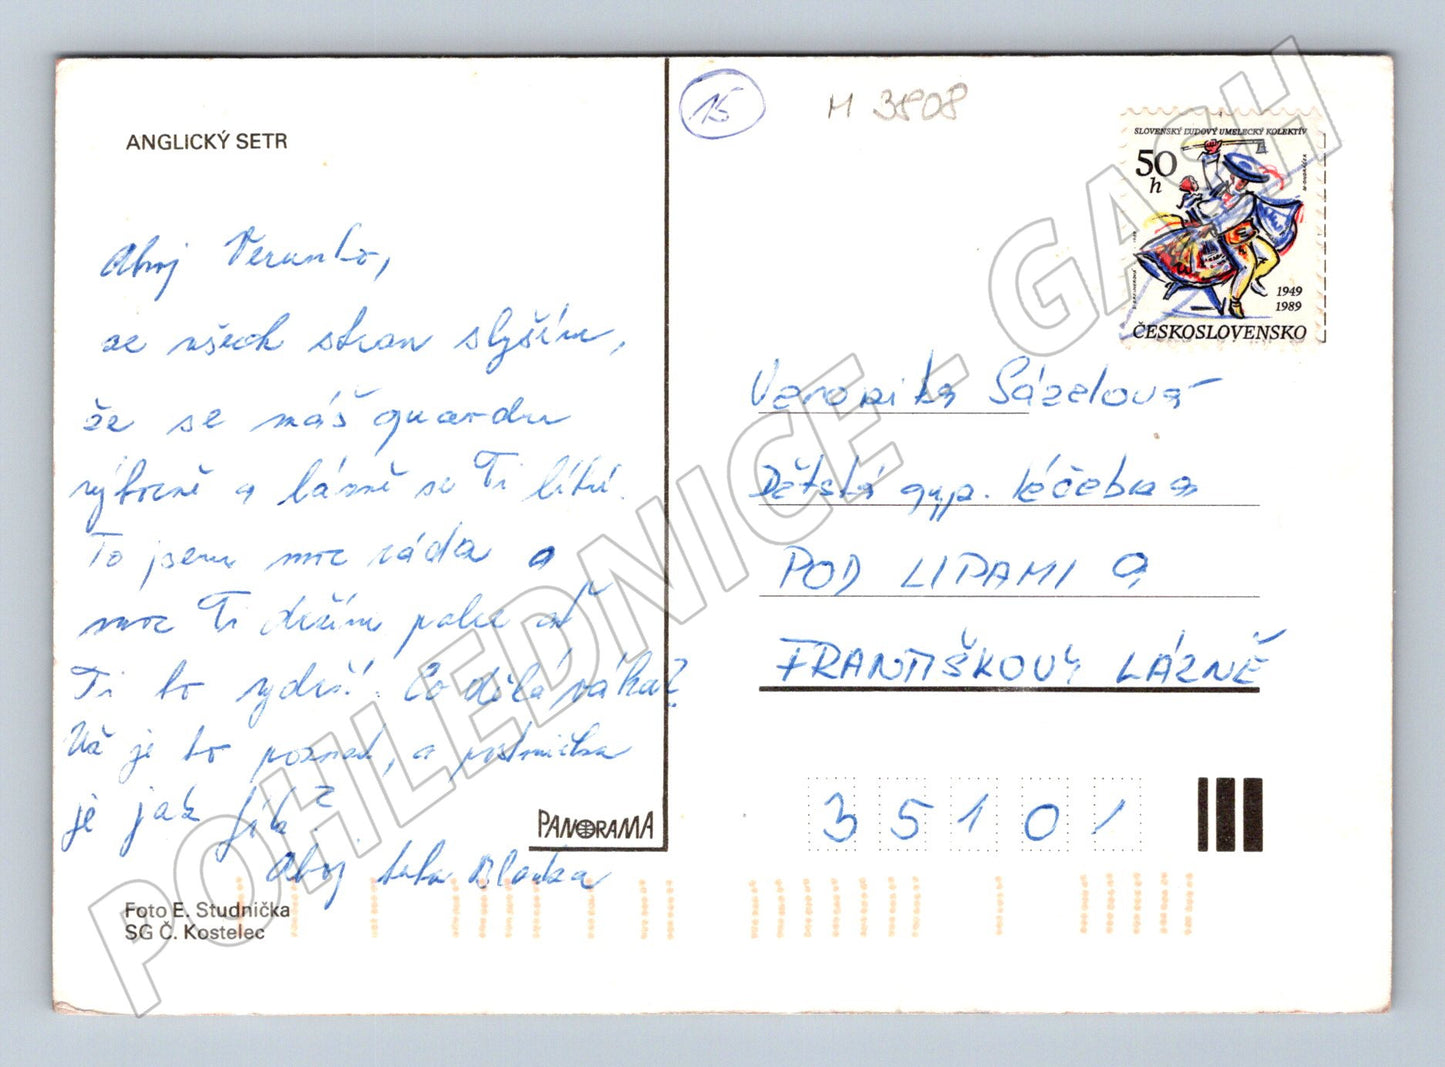 ANGLICKÝ SETR
Ahoj Verunko,
ze všech stran slyším,
že se máš opravdu
výborně a lázně se Ti líbí.
To jsem moc ráda a
moc Ti držím palce ať
Ti to vydrží. Co dělá
Už je to poznat, a
je jak
Ahoj teta Blanka
Foto E. Studnička
SG Č. Kostelec
PANORAMA
15
M 3808
SLOVENSKÝ ĽUDOVÝ UMELECKÝ KOLEKTÍV
50
h
1949
1989
ČESKOSLOVENSKO
Veronika Sázelová
Dětská gyp. léčebna
POD LIPAMI 9
FRANTIŠKOVY LÁZNĚ
35101
POHLEDNICE - GASH